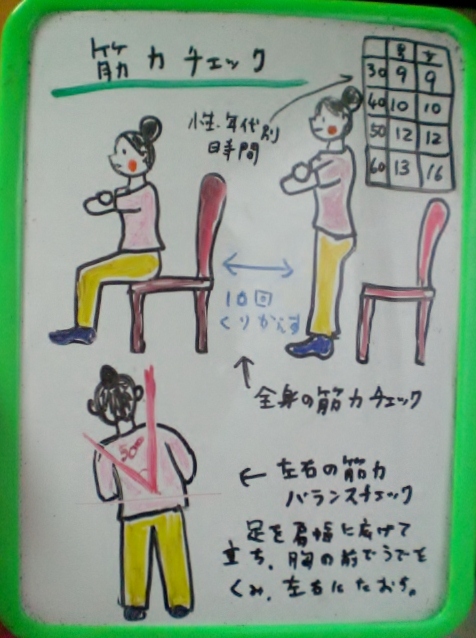 筋力チェック
男 女
30 9 9
40 10 10
50 12 12
60 13 16
性・年代別
時間
10回
くりかえす
全身の筋力チェック
50°
左右の筋力
バランスチェック
足を肩幅に広げて
立ち、胸の前でうでを
くみ、左右にたおす。